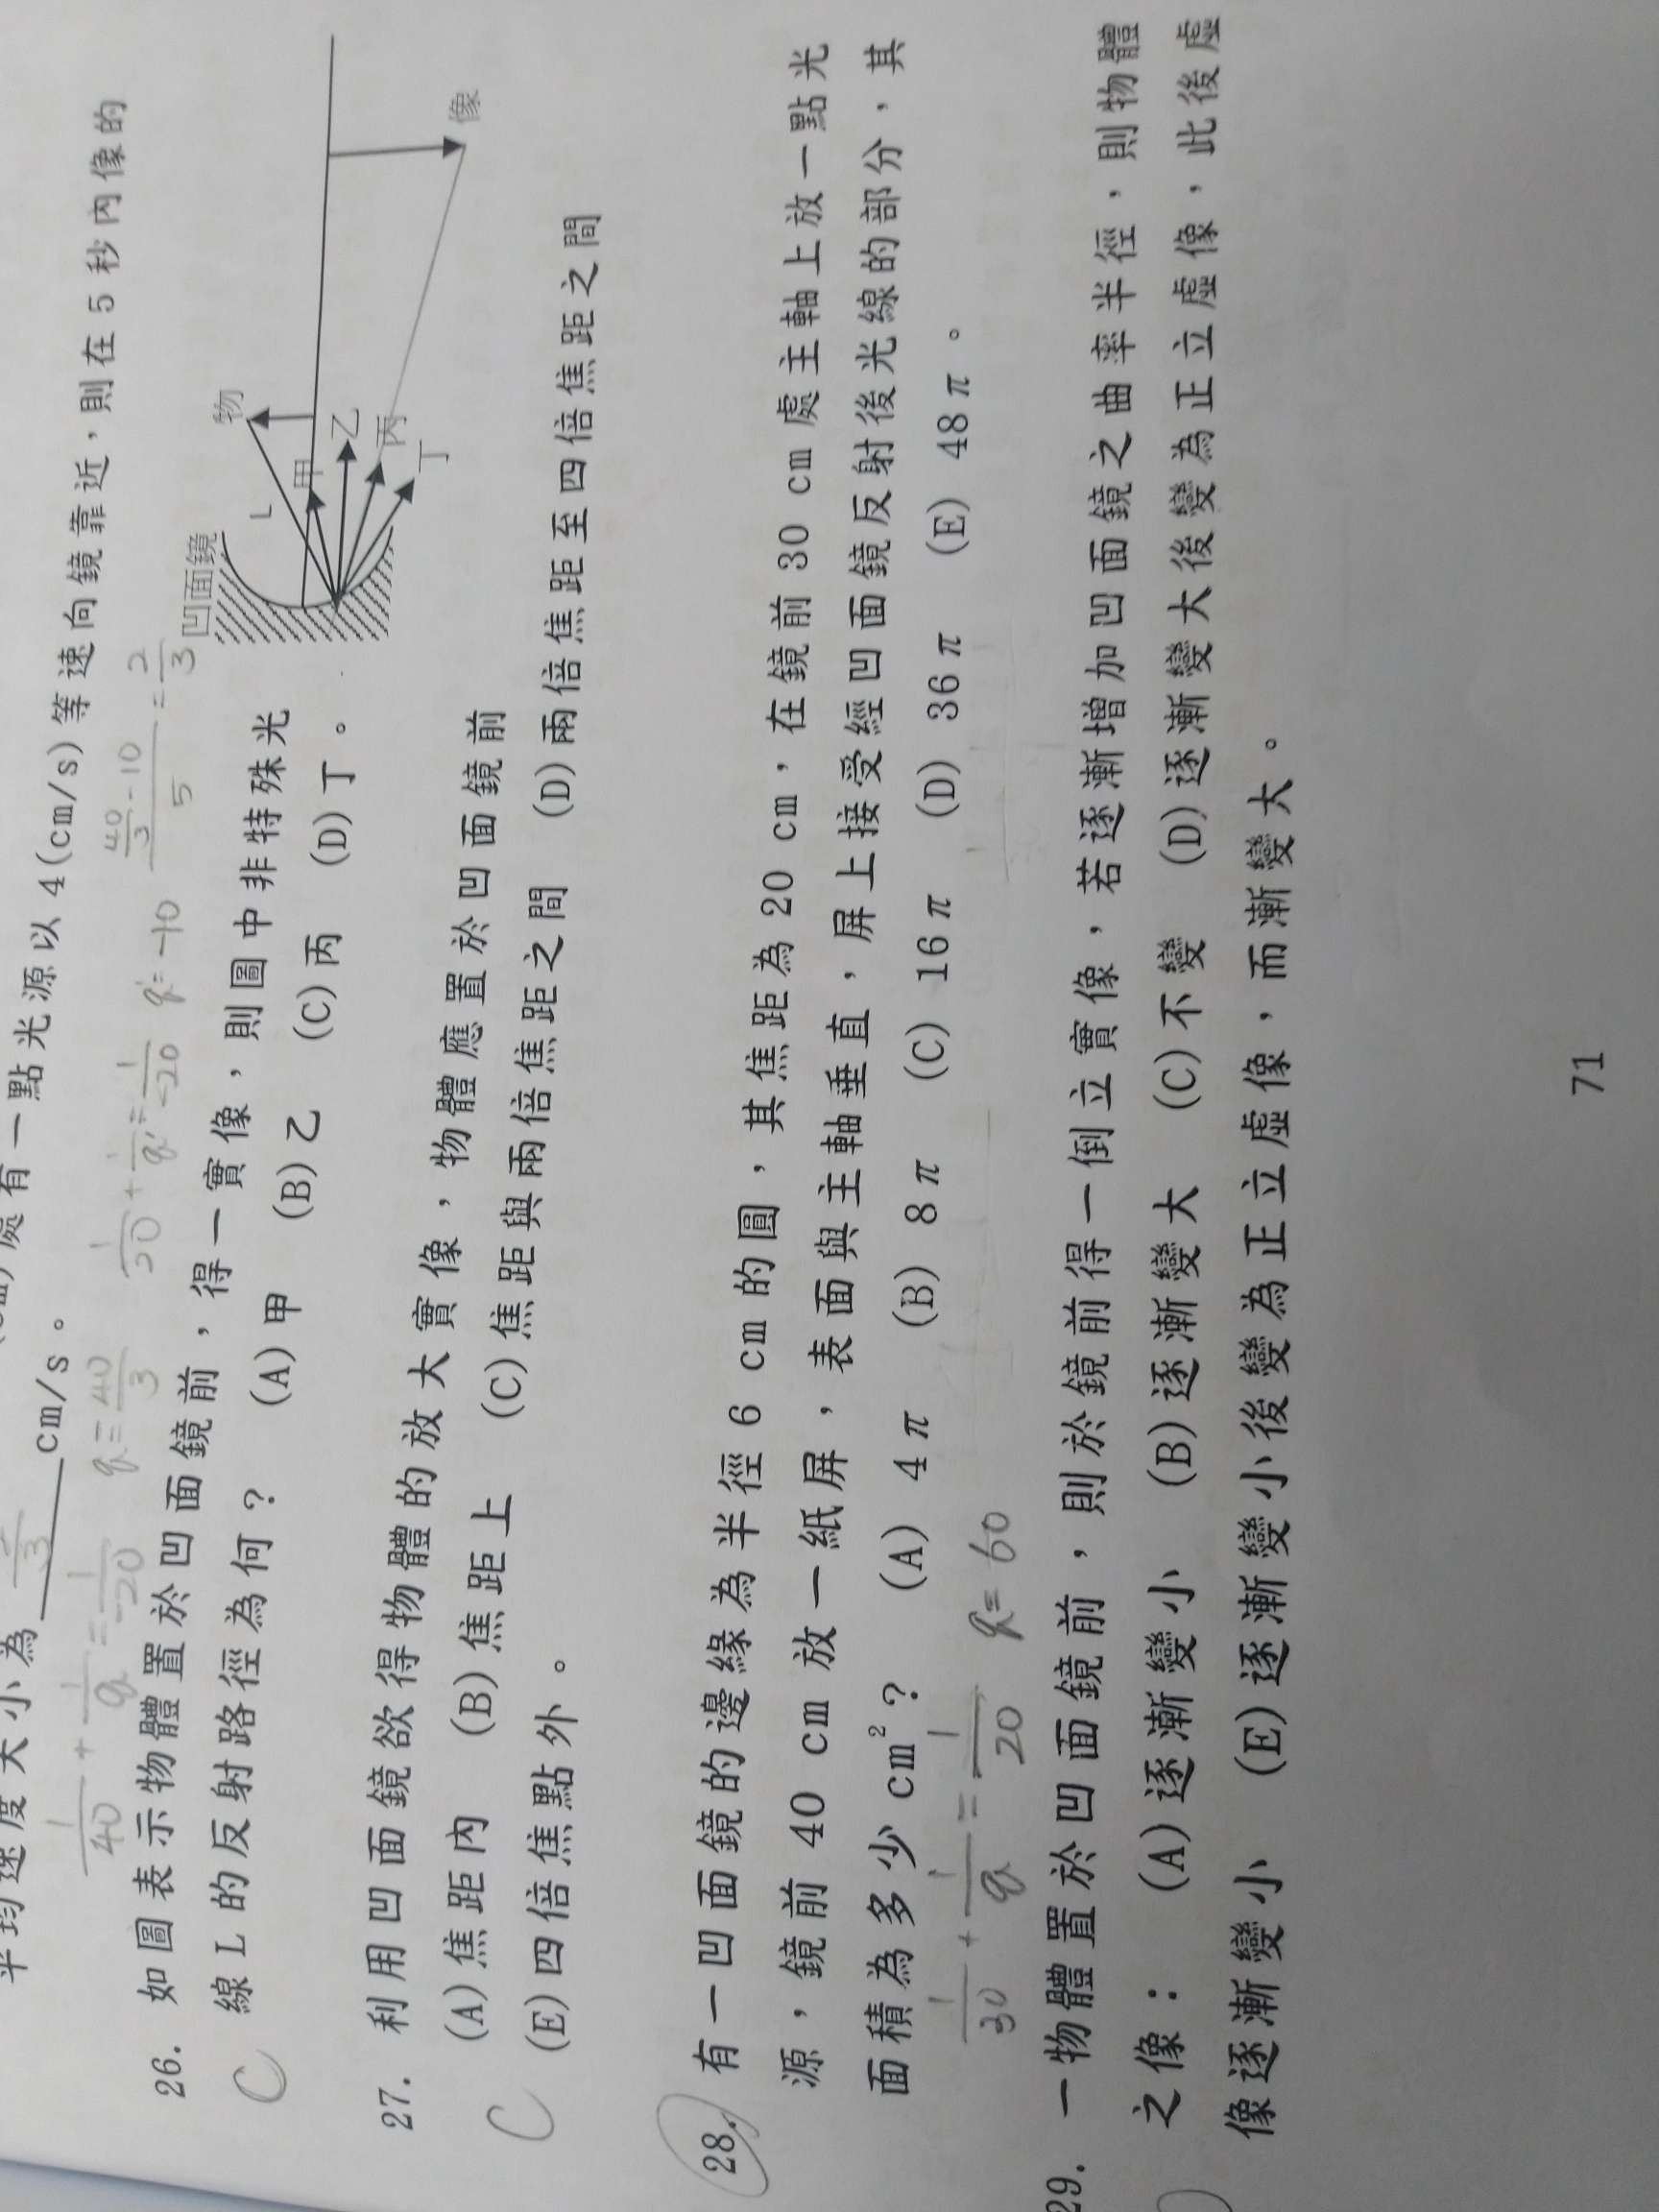 處有一點光源以 4(cm/s)等速向鏡靠近，則在 5 秒內像的
平均速度大小為 cm/s。
1/40 + 1/q = 1/-20 q = 40/3 1/20 + 1/q' = 1/-20 q' = -10 (40/3 - 10)/5 = 2/3
26. 如圖表示物體置於凹面鏡前，得一實像，則圖中非特殊光
線 L 的反射路徑為何？ (A)甲 (B)乙 (C)丙 (D)丁。
C
凹面鏡
物
L
甲
乙
丙
丁
像
27. 利用凹面鏡欲得物體的放大實像，物體應置於凹面鏡前
(A)焦距內 (B)焦距上 (C)焦距與兩倍焦距之間 (D)兩倍焦距至四倍焦距之間
(E)四倍焦點外。
C
28. 有一凹面鏡的邊緣為半徑 6 cm 的圓，其焦距為 20 cm，在鏡前 30 cm 處主軸上放一點光
源，鏡前 40 cm 放一紙屏，表面與主軸垂直，屏上接受經凹面鏡反射後光線的部分，其
面積為多少 cm²？ (A) 4π (B) 8π (C) 16π (D) 36π (E) 48π。
1/30 + 1/q = 1/20 q = 60
29. 一物體置於凹面鏡前，則於鏡前得一倒立實像，若逐漸增加凹面鏡之曲率半徑，則物體
之像： (A)逐漸變小 (B)逐漸變大 (C)不變 (D)逐漸變大後變為正立虛像，此後虛
像逐漸變小 (E)逐漸變小後變為正立虛像，而漸變大。
71